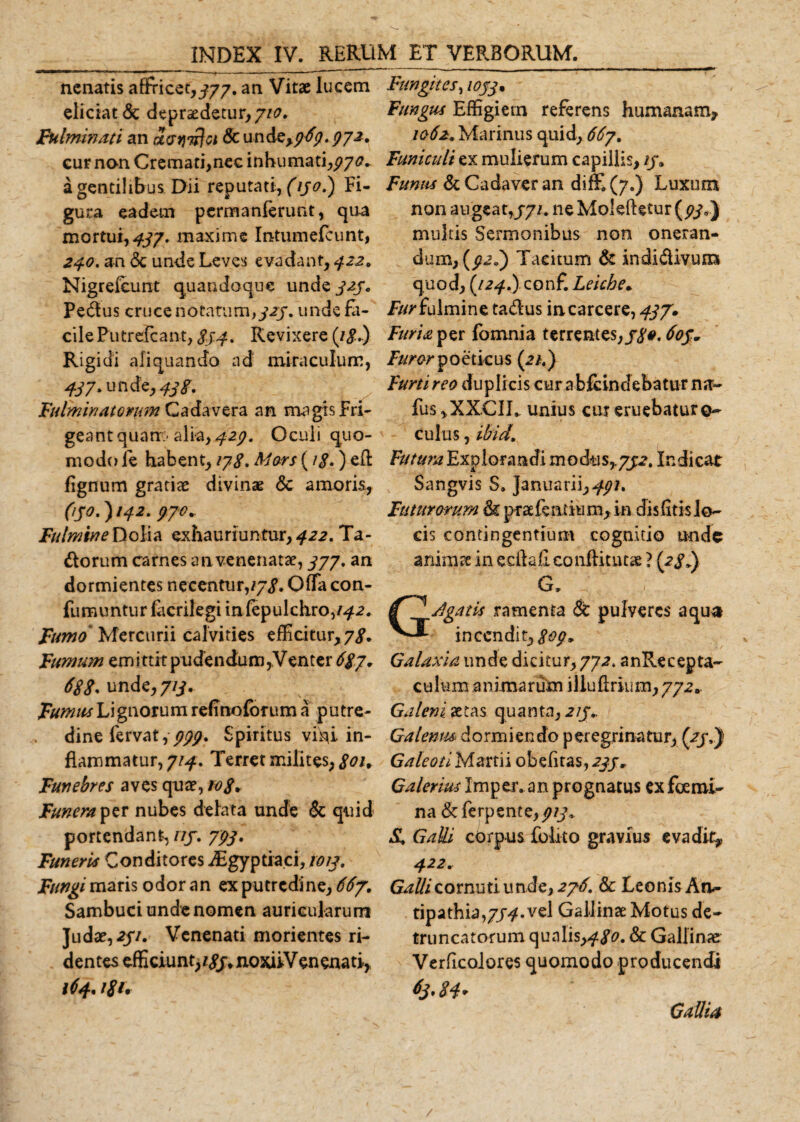 INDEX IV. RERUM ET VERBORUM.
nenatis affricet, 377. an Vitæ lucem
eliciat & deprædetur, 710.
Fulminati an ἄσηπτοι & unde, 969. 972.
cur non Cremati, nec inhumati, 970.
à gentilibus Dii reputati, (150.) Fi-
gura eadem permanserunt, qua
mortui, 437. maxime Intumescunt,
240. an & unde Leves evadant, 422.
Nigrescunt quandoque unde 325.
Pectus cruce notatum, 325. unde fa-
cile Putrescant, 854. Revixere (18.)
Rigidi aliquando ad miraculum,
437. unde, 438.
Fulminatorum Cadavera an magis Fri-
geant quam alia, 429. Oculi quo-
modo se habent, 178. Mors (18.) est
signum gratiæ divinæ & amoris,
(150.) 142. 970.
Fulmine Dolia exhauriuntur, 422. Ta-
ctorum carnes an venenatæ, 377. an
dormientes necentur, 178. Ossa con-
sumuntur sacrilegi in sepulchro, 142.
Fumo Mercurii calvities efficitur, 78.
Fumum emittit pudendum, Venter 687.
688. unde, 713.
Fumus Lignorum resinosorum à putre-
dine servat, 999. Spiritus vini in-
flammatur, 714. Terret milites, 801.
Funebres aves quæ, 108.
Funera per nubes delata unde & quid
portendant, 115. 793.
Funeris Conditores Ægyptiaci, 1013.
Fungi maris odor an ex putredine, 667.
Sambuci unde nomen auricularum
Judæ, 251. Venenati morientes ri-
dentes efficiunt, 185. noxii Venenati,
164. 181.
Fungites, 1053.
Fungus Effigiem referens humanam,
1062. Marinus quid, 667.
Funiculi ex mulierum capillis, 15.
Funus & Cadaver an diff. (7.) Luxum
non augeat, 571. ne Molestetur (93.)
multis Sermonibus non oneran-
dum, (92.) Tacitum & indictivum
quod, (124.) conf. Leiche.
Fur fulmine tactus in carcere, 437.
Furiæ per somnia terrentes, 580. 605.
Furor poëticus (21.)
Furti reo duplicis cur abscindebatur na-
sus, XXCII. unius cur eruebatur o-
culus, ibid.
Futura Explorandi modus, 752. Indicat
Sangvis S. Januarii, 491.
Futurorum & præsentium, in dissitis lo-
cis contingentium cognitio unde
animæ in ecstasi constitutæ? (28.)
G.
GAgatis ramenta & pulveres aqua
incendit, 809.
Galaxia unde dicitur, 772. an Recepta-
culum animarum illustrium, 772.
Galeni ætas quanta, 215.
Galenus dormiendo peregrinatur, (25.)
Galeoti Martii obesitas, 235.
Galerius Imper. an prognatus ex fœmi-
na & serpente, 913.
S. Galli corpus solito gravius evadit,
422.
Galli cornuti unde, 276. & Leonis An-
tipathia, 754. vel Gallinæ Motus de-
truncatorum qualis, 480. & Gallinæ
Versicolores quomodo producendi
63. 84.
Gallia